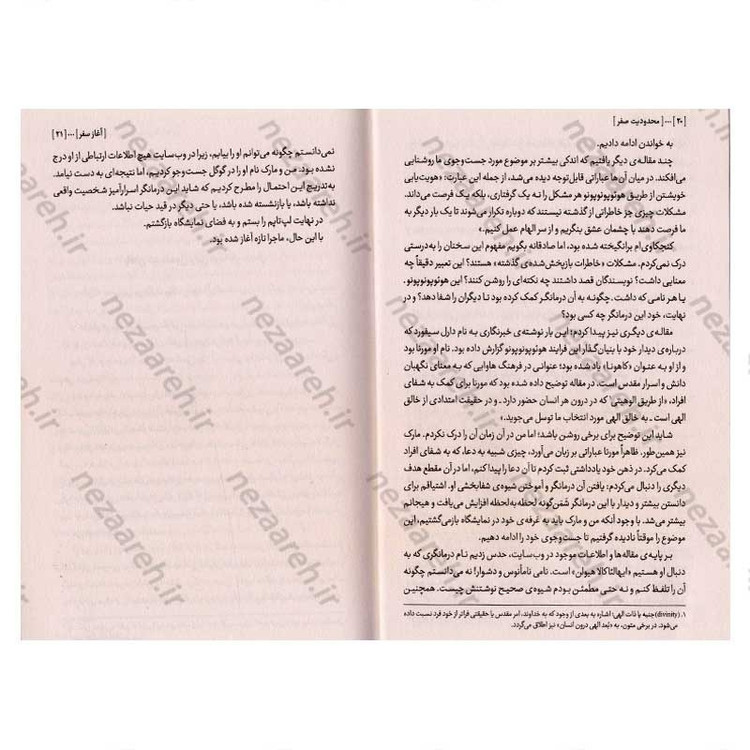 [۲۰] ... [ محدودیت صفر ]
به خواندن ادامه دادیم.
چند مقاله‌ی دیگر یافتیم که اندکی بیشتر بر موضوع مورد جست‌وجوی ما روشنایی
می‌افکند. در میان آن‌ها عباراتی قابل‌توجه دیده می‌شد، از جمله این عبارت: «هویت‌یابی
خویشتن از طریق هوئوپونوپونو هر مشکل را نه یک گرفتاری، بلکه یک فرصت می‌داند.
مشکلات چیزی جز خاطراتی از گذشته نیستند که دوباره تکرار می‌شوند تا یک بار دیگر به
ما فرصت دهند با چشمان عشق بنگریم و از سر الهام عمل کنیم.»
کنجکاوی‌ام برانگیخته شده بود، اما صادقانه بگویم مفهوم این سخنان را به‌درستی
درک نمی‌کردم. مشکلات «خاطرات بازپخش‌شده‌ی گذشته» هستند؟ این تعبیر دقیقاً چه
معنایی داشت؟ نویسندگان قصد داشتند چه نکته‌ای را روشن کنند؟ این هوئوپونوپونو.
یا هر نامی که داشت. چگونه به آن درمانگر کمک کرده بود تا دیگران را شفا دهد؟ و در
نهایت، خود این درمانگر چه کسی بود؟
مقاله‌ی دیگری نیز پیدا کردم؛ این بار نوشته‌ی خبرنگاری به نام دارل سیفورد که
درباره‌ی دیدار خود با بنیان‌گذار این فرایند هوئوپونوپونو گزارش داده بود. نام او مورنا بود
و از او به عنوان «کاهونا» یاد شده بود؛ عنوانی در فرهنگ هاوایی که به معنای نگهبان
دانش و اسرار مقدس است. در مقاله توضیح داده شده بود که مورنا برای کمک به شفای
افراد، «از طریق الوهیتی¹ که در درون هر انسان حضور دارد ـ و در حقیقت امتدادی از خالق
الهی است ـ به خالق الهی مورد انتخاب ما توسل می‌جوید.»
شاید این توضیح برای برخی روشن باشد؛ اما من در آن زمان آن را درک نکردم. مارک
نیز همین‌طور. ظاهراً مورنا عباراتی بر زبان می‌آورد، چیزی شبیه به دعا، که به شفای افراد
کمک می‌کرد. در ذهن خود یادداشتی ثبت کردم تا آن دعا را پیدا کنم، اما در آن مقطع هدف
دیگری را دنبال می‌کردم: یافتن آن درمانگر و آموختن شیوه‌ی شفابخشی او. اشتیاقم برای
دانستن بیشتر و دیدار با این درمانگر شَمَن‌گونه لحظه‌به‌لحظه افزایش می‌یافت و هیجانم
بیشتر می‌شد. با وجود آنکه من و مارک باید به غرفه‌ی خود در نمایشگاه بازمی‌گشتیم، این
موضوع را موقتاً نادیده گرفتیم تا جست‌وجوی خود را ادامه دهیم.
بر پایه‌ی مقاله‌ها و اطلاعات موجود در وب‌سایت، حدس زدیم نام درمانگری که به
دنبال او هستیم «ایهالئاکالا هیولن» است. نامی نامأنوس و دشوار! نه می‌دانستم چگونه
آن را تلفظ کنم و نه حتی مطمئن بودم شیوه‌ی صحیح نوشتنش چیست. همچنین
۱. (divinity) جنبه یا ذات الهی؛ اشاره به بعدی از وجود که به خداوند، امر مقدس یا حقیقتی فراتر از خود فرد نسبت داده
می‌شود. در برخی متون، به «بُعد الهی درون انسان» نیز اطلاق می‌گردد.
[ آغاز سفر ] ... [۲۱]
نمی‌دانستم چگونه می‌توانم او را بیابم، زیرا در وب‌سایت هیچ اطلاعات ارتباطی از او درج
نشده بود. من و مارک نام او را در گوگل جست‌وجو کردیم، اما نتیجه‌ای به دست نیامد.
به‌تدریج این احتمال را مطرح کردیم که شاید این درمانگر اسرارآمیز شخصیت واقعی
نداشته باشد، یا بازنشسته شده باشد، یا حتی دیگر در قید حیات نباشد.
در نهایت لپ‌تاپم را بستم و به فضای نمایشگاه بازگشتم.
با این حال، ماجرا تازه آغاز شده بود.
nezaareh.ir
nezaareh.ir
nezaareh.ir
nezaareh.ir
nezaareh.ir
nezaareh.ir